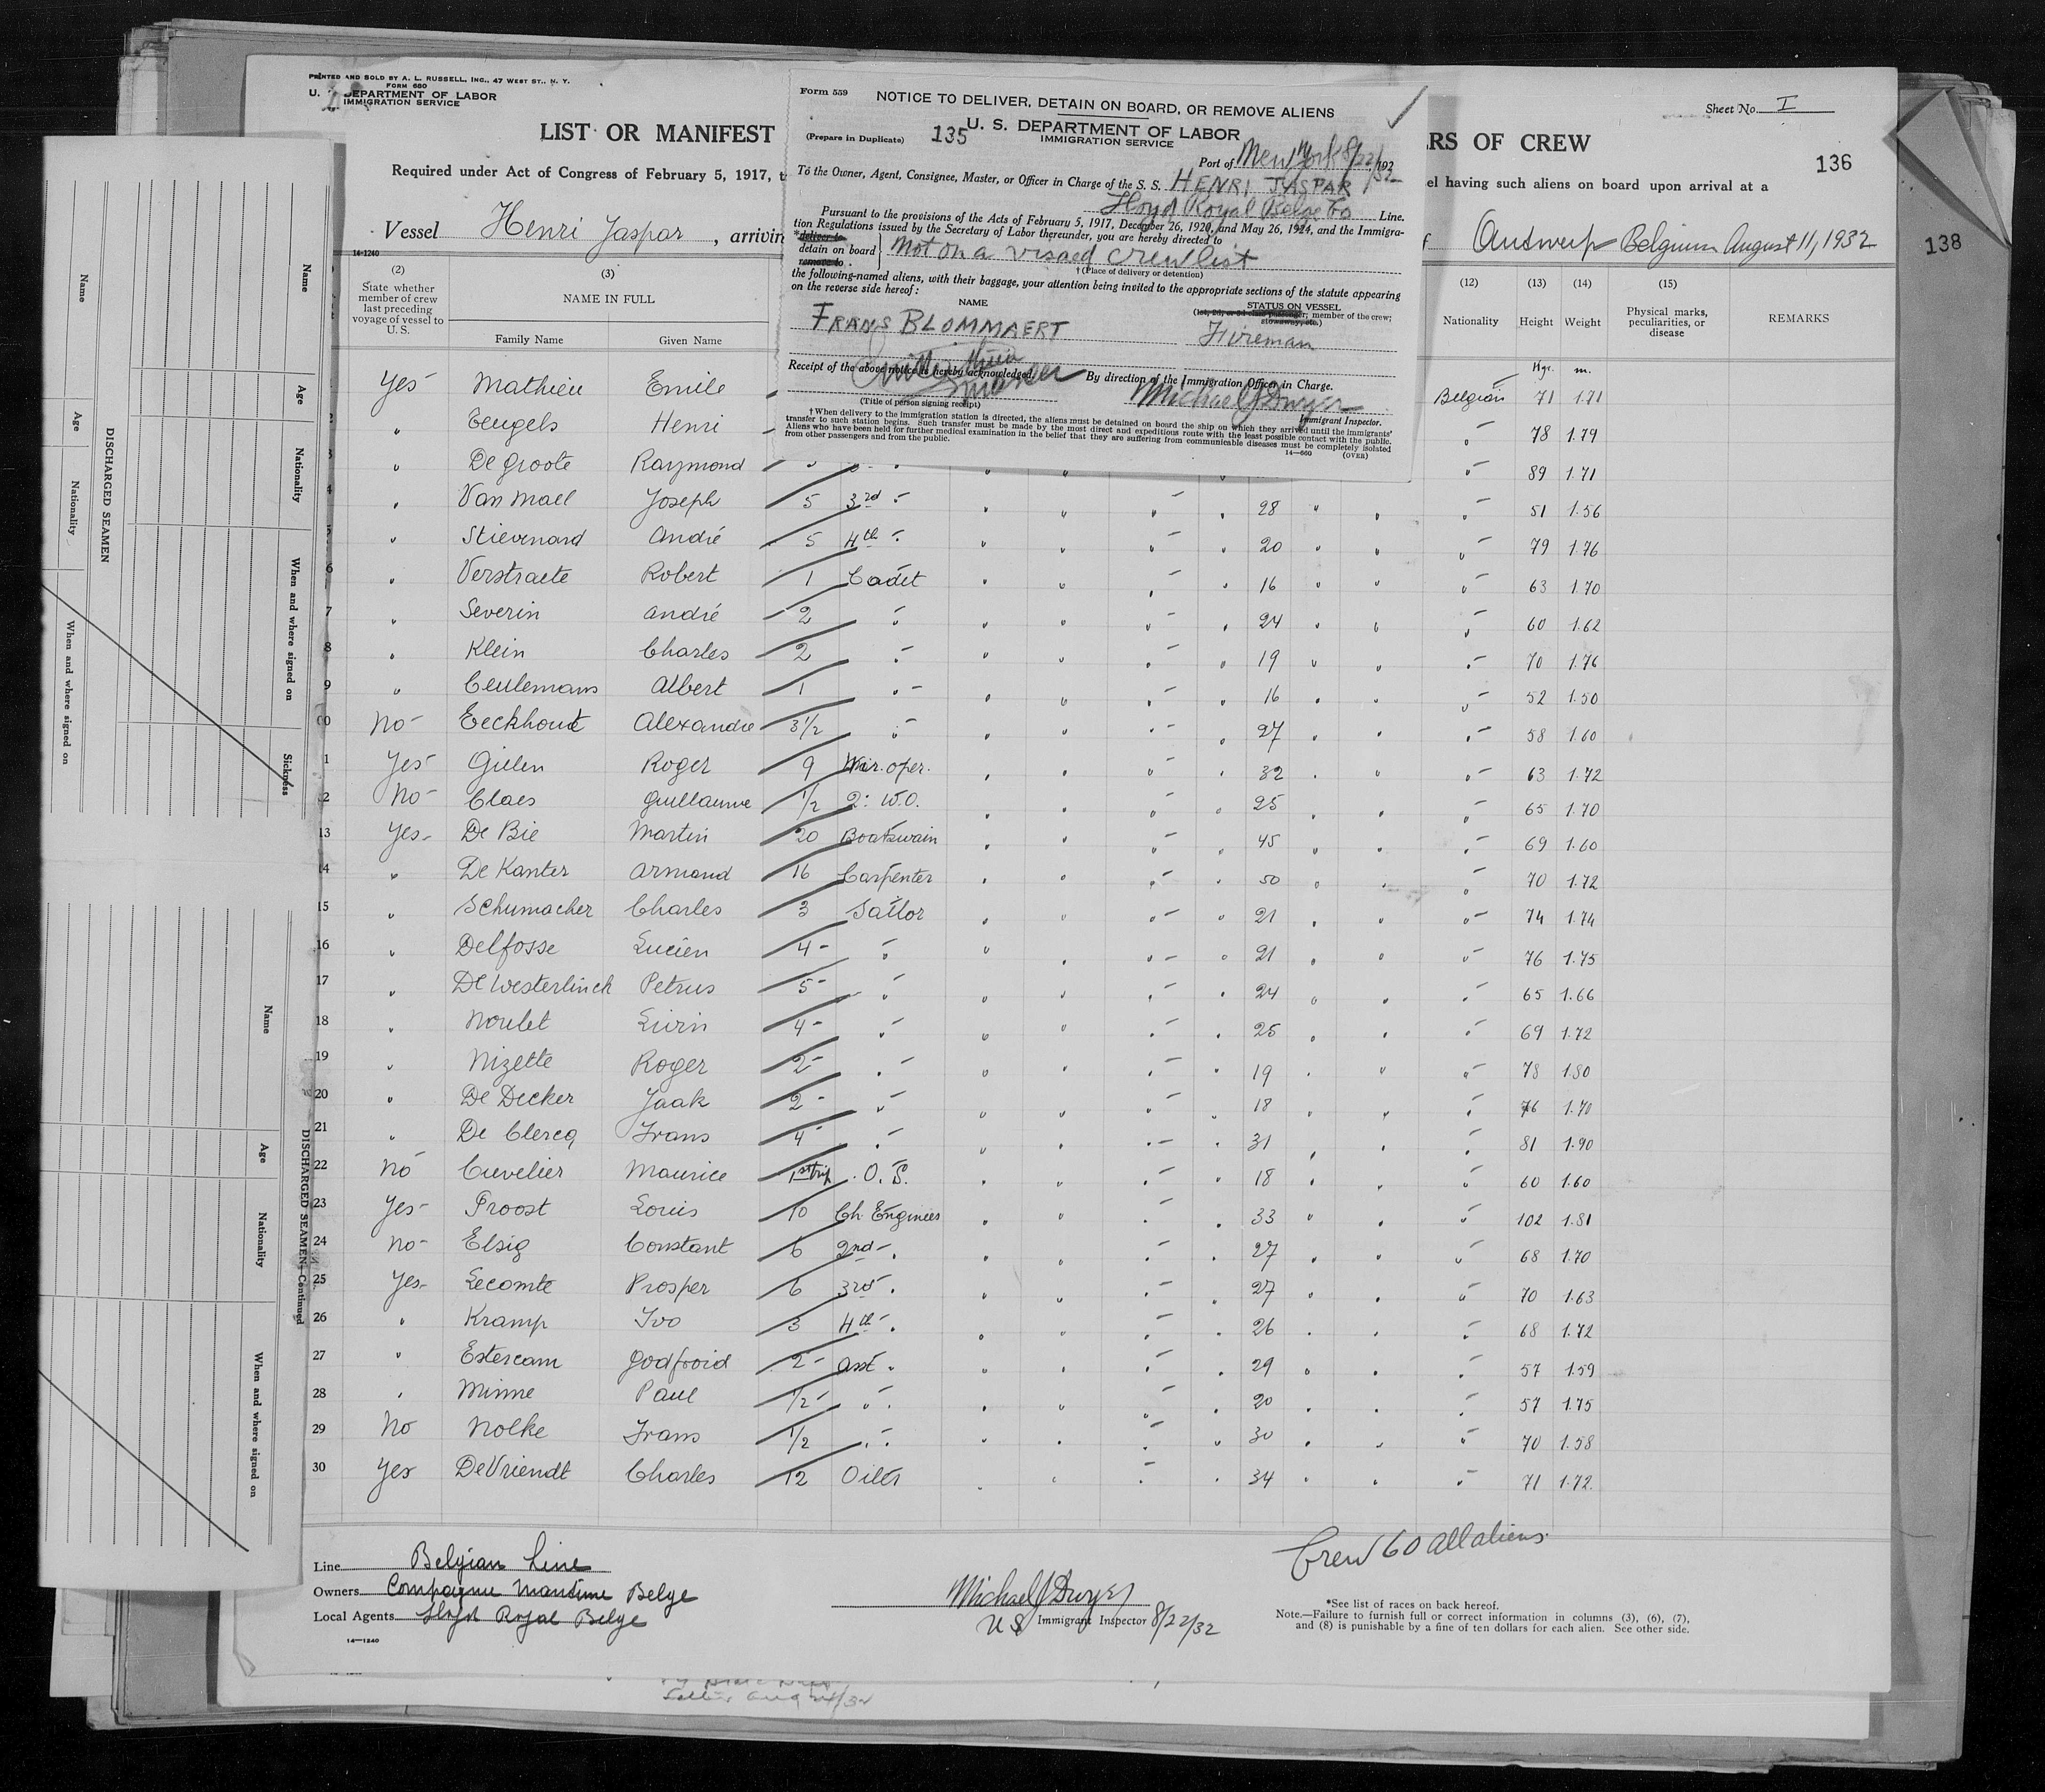 PRINTED AND SOLD BY A. L. RUSSELL, INC., 47 WEST ST., N. Y.
FORM 680
U. S. DEPARTMENT OF LABOR
IMMIGRATION SERVICE
LIST OR MANIFEST
ERS OF CREW
Sheet No. I
136
138
Required under Act of Congress of February 5, 1917, t
el having such aliens on board upon arrival at a
Vessel Henri Jaspar, arrivin
Antwerp Belgium August 11, 1932
Form 559
NOTICE TO DELIVER, DETAIN ON BOARD, OR REMOVE ALIENS
(Prepare in Duplicate) 135
U. S. DEPARTMENT OF LABOR
IMMIGRATION SERVICE
Port of New York 8/22, 1932
To the Owner, Agent, Consignee, Master, or Officer in Charge of the S. S. HENRI JASPAR
Lloyd Royal Belge Co Line.
Pursuant to the provisions of the Acts of February 5, 1917, December 26, 1920, and May 26, 1924, and the Immigra-
tion Regulations issued by the Secretary of Labor thereunder, you are hereby directed to
*deliver to
detain on board
remove to
Not on a visaed crew list
†(Place of delivery or detention)
the following-named aliens, with their baggage, your attention being invited to the appropriate sections of the statute appearing
on the reverse side hereof:
NAME
STATUS ON VESSEL
(1st, 2d, or 3d class passenger; member of the crew;
stowaway, etc.)
FRANS BLOMMAERT Fireman
Receipt of the above notice is hereby acknowledged.
By direction of the Immigration Officer in Charge.
Michael J Dwyer
(Title of person signing receipt)
Immigrant Inspector.
†When delivery to the immigration station is directed, the aliens must be detained on board the ship on which they arrived until the immigrants'
transfer to such station begins. Such transfer must be made by the most direct and expeditious route with the least possible contact with the public.
Aliens who have been held for further medical examination in the belief that they are suffering from communicable diseases must be completely isolated
from other passengers and from the public.
14—660 (OVER)
14-1240
(2) State whether member of crew last preceding voyage of vessel to U. S.
(3) NAME IN FULL
Family Name Given Name
(12) Nationality
(13) Height
(14) Weight
(15) Physical marks, peculiarities, or disease
REMARKS
Kgr. m.
Yes Mathieu Emile Belgian 71 1.71
" Teugels Henri " 78 1.79
3 " De groote Raymond " 89 1.71
4 " Van Mael Joseph 5 3rd " 28 " 51 1.56
5 " Stievenard André 5 4th " 20 " 79 1.76
6 " Verstraete Robert 1 Cadet 16 " 63 1.70
7 " Severin André 2 " 24 " 60 1.62
8 " Klein Charles 2 " 19 " 70 1.76
9 " Ceulemans Albert 1 " 16 " 52 1.50
10 No Eeckhout Alexandre 3 1/2 " 27 " 58 1.60
11 Yes Gielen Roger 9 Wir. oper. 32 " 63 1.72
12 No Claes Guillaume 1/2 2: W.O. 25 " 65 1.70
13 Yes De Bie Martin 20 Boatswain 45 " 69 1.60
14 " De Kanter Armand 16 Carpenter 50 " 70 1.72
15 " Schumacher Charles 3 Sailor 21 " 74 1.74
16 " Delfosse Lucien 4 " 21 " 76 1.75
17 " De Westerlinck Petrus 5 " 24 " 65 1.66
18 " Noulet Livin 4 " 25 " 69 1.72
19 " Nizette Roger 2 " 19 " 78 1.80
20 " De Decker Jaak 2 " 18 " 76 1.70
21 " De Clercq Frans 4 " 31 " 81 1.90
22 No Cuvelier Maurice 1st trip O. S. 18 " 60 1.60
23 Yes Proost Louis 10 Ch. Engineer 33 " 102 1.81
24 No Elsig Constant 6 2nd " 27 " 68 1.70
25 Yes Lecomte Prosper 6 3rd " 27 " 70 1.63
26 " Kramp Ivo 3 4th " 26 " 68 1.72
27 " Estercam Godfroid 2 Asst " 29 " 57 1.59
28 " Minne Paul 1/2 " 20 " 57 1.75
29 No Nolke Frans 1/2 " 30 " 70 1.58
30 Yes De Vriendt Charles 12 Oiler 34 " 71 1.72
Crew 60 all aliens
Line Belgian Line
Owners Compagnie Maritime Belge
Local Agents Lloyd Royal Belge
14—1240
Michael J Dwyer
US Immigrant Inspector 8/22/32
*See list of races on back hereof.
Note.—Failure to furnish full or correct information in columns (3), (6), (7),
and (8) is punishable by a fine of ten dollars for each alien. See other side.
DISCHARGED SEAMEN
Name
Age
Nationality
When and where signed on
Name
Age
Nationality
When and where signed on
Sickness
DISCHARGED SEAMEN—Continued
Name
Age
Nationality
When and where signed on